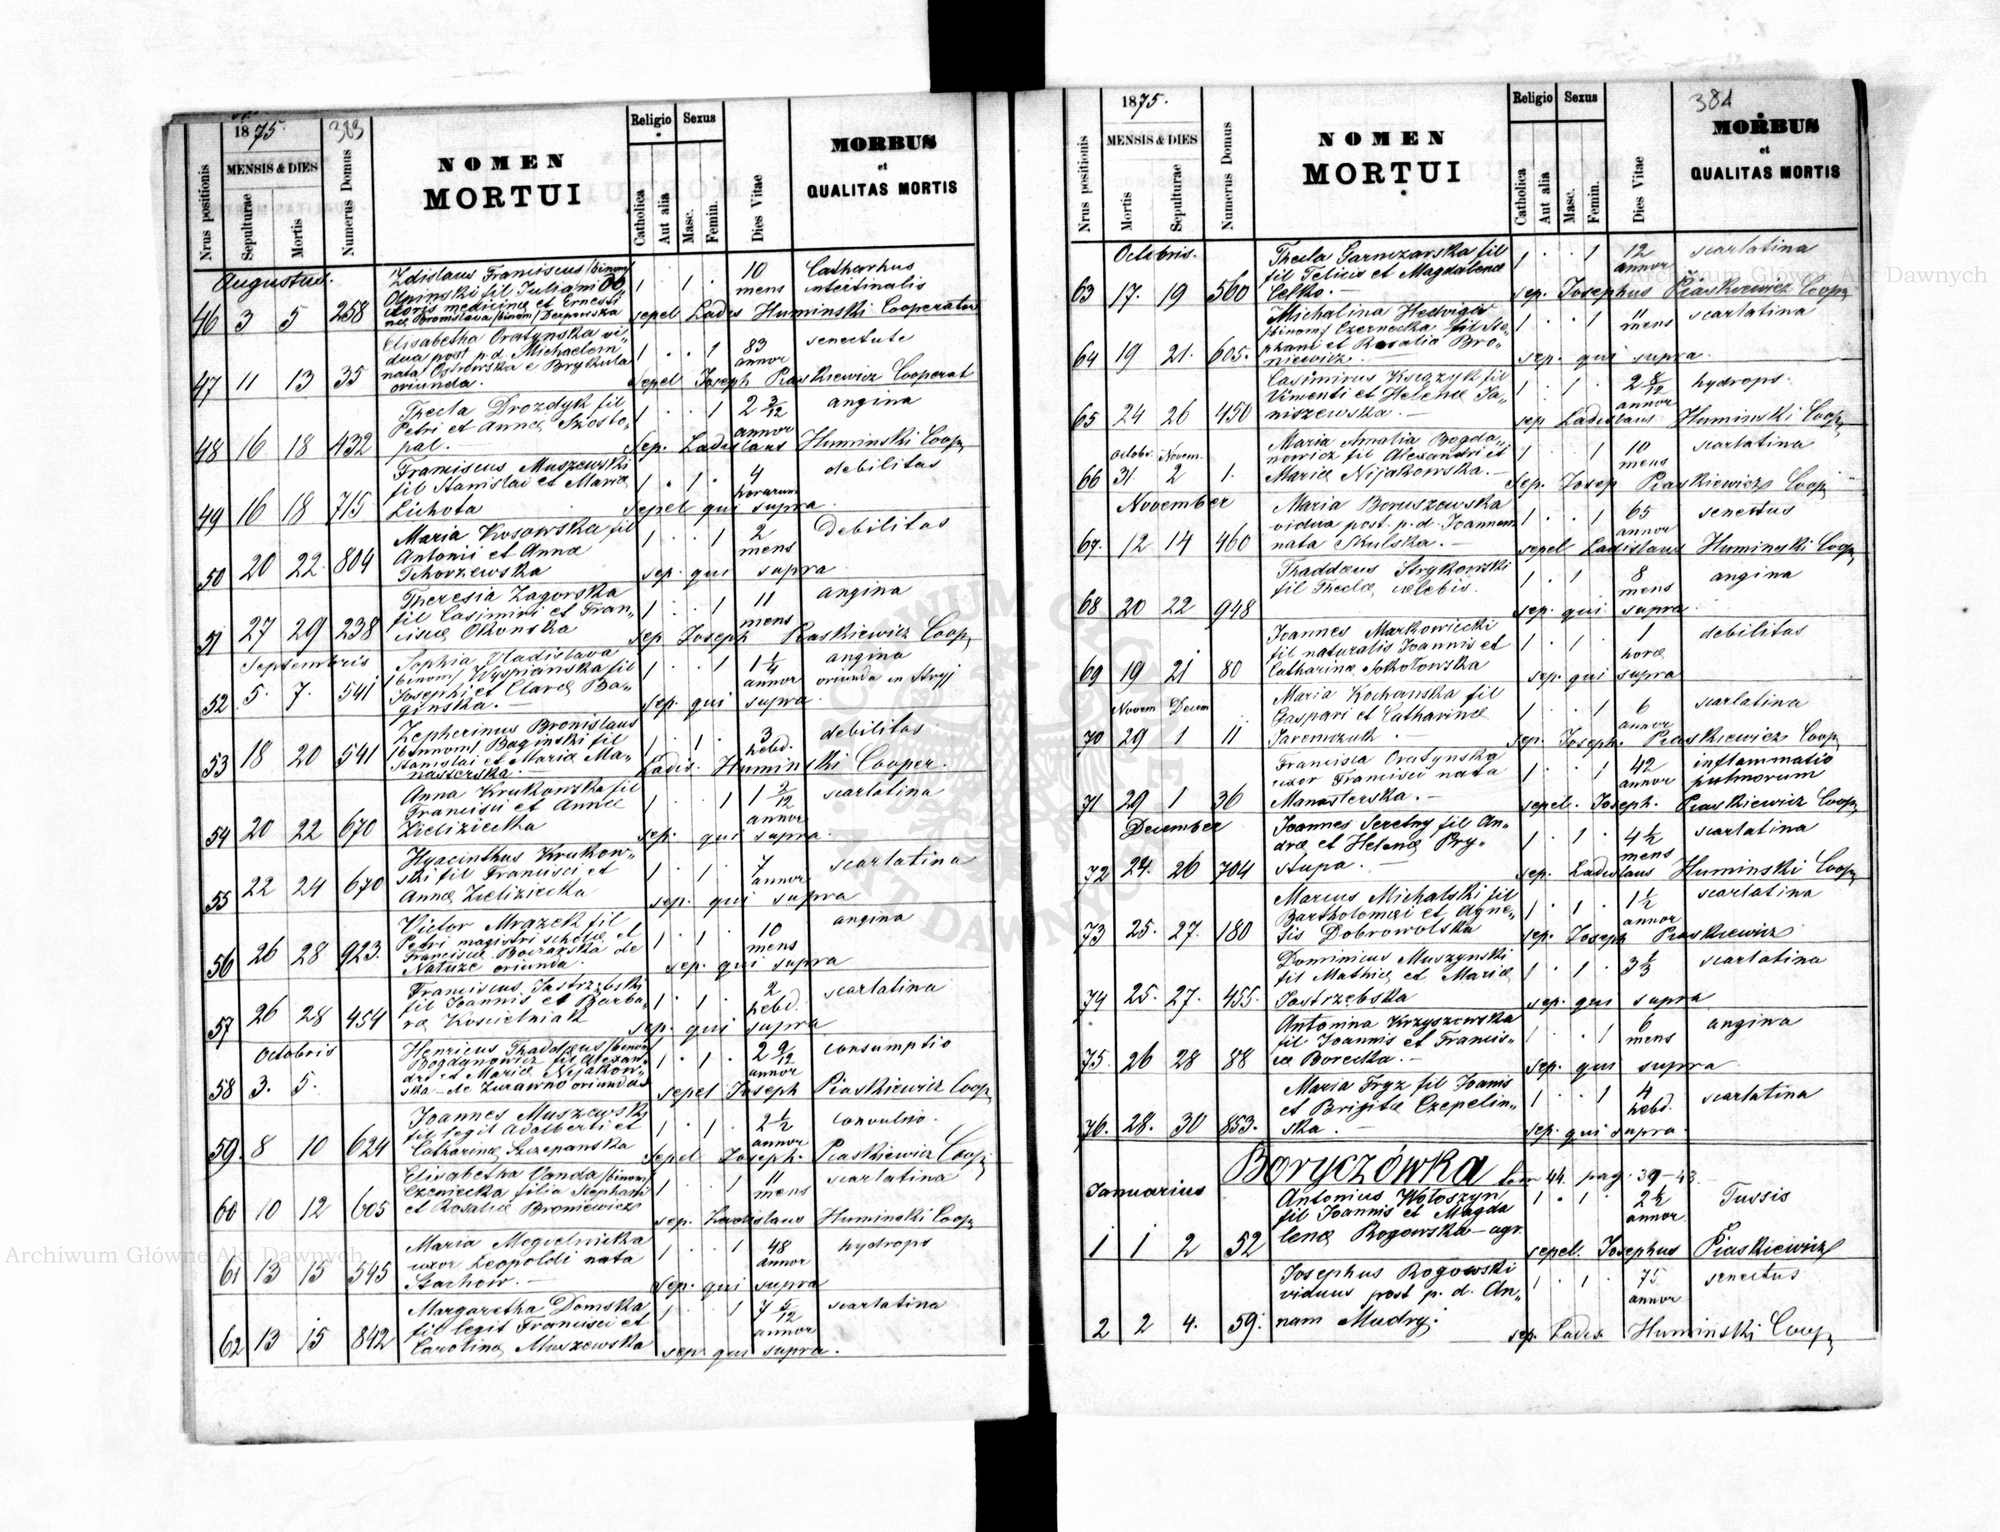 1875.
383
Nrus positionis
MENSIS & DIES
Sepulturae
Mortis
Numerus Domus
NOMEN
MORTUI
Religio
Catholica
Aut alia
Sexus
Masc.
Femin.
Dies Vitae
MORBUS
et
QUALITAS MORTIS
Augustus.
Zdislaus Franciscus /binom/
fil Juliani
medicinæ et Ernesti
46 3 5 258
1 1 10 mens
Catharhus
intestinalis
sepel Ladis Huminski Cooperator
Elisabetha Oratynska vi-
dua post p.d. Michaelem
nata Ostrowska e Brykula
oriunda.
47 11 13 35
1 1 83 annor
senectute
Sepel Joseph Piaskiewicz Cooperat
Thecla Drozdyk fil
Petri et Annæ Szosto-
pal.
48 16 18 432
1 1 2 3/12 annor
angina
Sep. Ladislaus Huminski Coop
Franciscus Muszewski
fil Stanislai et Mariæ
Lichota
49 16 18 715
1 1 4 horarum
debilitas
Sepel qui supra
Maria Kosowska fil
Antonii et Annæ
Tchorzewska
50 20 22 804
1 1 2 mens
Debilitas
sep. qui supra
Theresia Zagorska
fil Casimiri et Fran-
ciscæ Okonska
51 27 29 238
1 1 11 mens
angina
sep Joseph Piaskiewicz Coop
Septembris
Sophia Vladislava
/binom/ Wyspianska fil
Josephi et Claræ Ba-
ginska.
52 5. 7. 541
1 1 1 1/4 annor
angina
oriunda in Stryj
sep. qui supra
Zepherinus Bronislaus
/binnom/ Baginski fil
Stanislai et Mariæ Ma-
nasterska.
53 18 20 541
1 1 3 hebd.
debilitas
Ladis. Huminski Cooper.
Anna Krukowska fil
Francisci et Annæ
Zieliziecka
54 20 22 670
1 1 1 3/12 annor
scarlatina
sep. qui supra.
Hyacinthus Krukow-
ski fil Francisci et
Annæ Zieliziecka
55 22 24 670
1 1 7 annor
scarlatina
sep. qui supra
Victor Mrazek fil
Petri magistri scholæ et
Franciscæ de
oriunda.
56 26 28 923.
1 1 10 mens
angina
sep. qui supra
Franciscus Jastrzębski
fil Joannis et Barba-
ræ Koscielniak
57 26 28 454
1 1 2 hebd.
scarlatina
sep. qui supra
Octobris
Henricus Thaddæus /binom/
Bogdanowicz fil Alexan-
dri et Mariæ Nijakow-
ska - de Zurawno oriundus
58 3. 5.
1 1 2 9/12 annor
consumptio
sepel Joseph Piaskiewicz Coop
Joannes Muszewski
fil legit Adalberti et
Catharinæ Szczepanska
59. 8 10 624
1 1 2 1/2 annor
convulsio.
Sepel Joseph. Piaskiewicz Coop
Elisabetha Vanda /binom/
Czeniecka filia Stephani
et Rosaliæ Broniewicz
60 10 12 605
1 1 11 mens
scarlatina
sep. Ladislaus Huminski Coop
Maria Mogielnicka
uxor Leopoldi nata
Stachow.
61 13 15 545
1 1 48 annor
hydrops
Sep. qui supra
Margaretha Domska
fil legit Francisci et
Carolinæ Muszewska
62 13 15 842
1 1 7 5/12 annor
scarlatina
sep. qui supra.
1875.
384
Nrus positionis
MENSIS & DIES
Mortis
Sepulturae
Numerus Domus
NOMEN
MORTUI
Religio
Catholica
Aut alia
Sexus
Masc.
Femin.
Dies Vitae
MORBUS
et
QUALITAS MORTIS
Octobris.
Thecla Garnczarska fil
fil Felicis et Magdalenæ
Celko.
63 17. 19 560
1 1 12 annor
scarlatina
sep. Josephus Piaskiewicz Coop
Michalina Hedvigis
/binom/ Czernecka fil Ste-
phani et Rosaliæ Bro-
niewicz.
64 19 21. 605.
1 1 11 mens
scarlatina
sep. qui supra.
Casimirus Ksiązyk fil
Vincenti et Helenæ Ja-
niszewska.
65 24 26 450
1 1 2 8/12 annor
hydrops.
sep Ladislaus Huminski Coop
Octobr. Novem.
Maria Amalia Bogda-
nowicz fil Alexandri et
Mariæ Nijakowska.
66 31. 2 1.
1 1 10 mens
scarlatina
Sep. Josep Piaskiewicz Coop
November
Maria Boruszewska
vidua post. p.d. Joannem
nata Skulska.
67. 12 14 460
1 1 65 annor
senectus
sepel Ladislaus Huminski Coop
Thaddæus Strykowski
fil Theclæ cælebis.
68 20 22 948
1 1 8 mens
angina
sep. qui supra.
Joannes Markowiecki
fil naturalis Joannis et
Catharinæ Sokołowska
69 19 21 80
1 1 1 horæ
debilitas
sep. qui supra
Novem Decem
Maria Kochanska fil
Gaspari et Catharinæ
Jaremczuk.
70 29 1 11
1 1 6 annor
scarlatina
sep. Joseph. Piaskiewicz Coop
Francisca Oratynska
uxor Francisci nata
Manasterska.
71 29 1 36
1 1 42 annor
inflammatio
pulmorum
sepel. Joseph. Piaskiewicz Coop
December
Joannes Seretny fil An-
dræ et Helenæ Pry-
stupa.
72 24. 26 704
1 1 4 1/2 mens
scarlatina
sep. Ladislaus Huminski Coop
Marcus Michalski fil
Bartholomæi et Agne-
tis Dobrowolska
73 25. 27. 180
1 1 1 1/2 annor
scarlatina
sep. Joseph Piaskiewicz
Dominicus Muszynski
fil Mathiæ et Mariæ
Jastrzębska
74 25. 27. 455.
1 1 3 1/3
scarlatina
sep. qui supra
Antonina Krzyszewska
fil Joannis et Francis-
cæ Borecka.
75. 26 28 88
1 1 6 mens
angina
sep. qui supra
Maria Fryz fil Joanis
et Brigitæ Czepelin-
ska.
76. 28. 30 853.
1 1 4 hebd.
scarlatina
sep. qui supra.
Boryczówka tom 44. pag. 39-43.
Januarius
Antonius Wołoszyn
fil Joannis et Magda
lenæ Rogowska - agr.
1 1 2 52
1 1 2 1/2 annor.
Tussis
sepel. Josephus Piaskiewicz
Josephus Rogowski
viduus post p. d. An-
nam Mudryj.
2 2 4. 59.
1 1 75 annor
senectus
sep. Ladis. Huminski Coop
Archiwum Główne Akt Dawnych
Archiwum Główne Akt Dawnych
ARCHIWUM GŁÓWNE AKT DAWNYCH